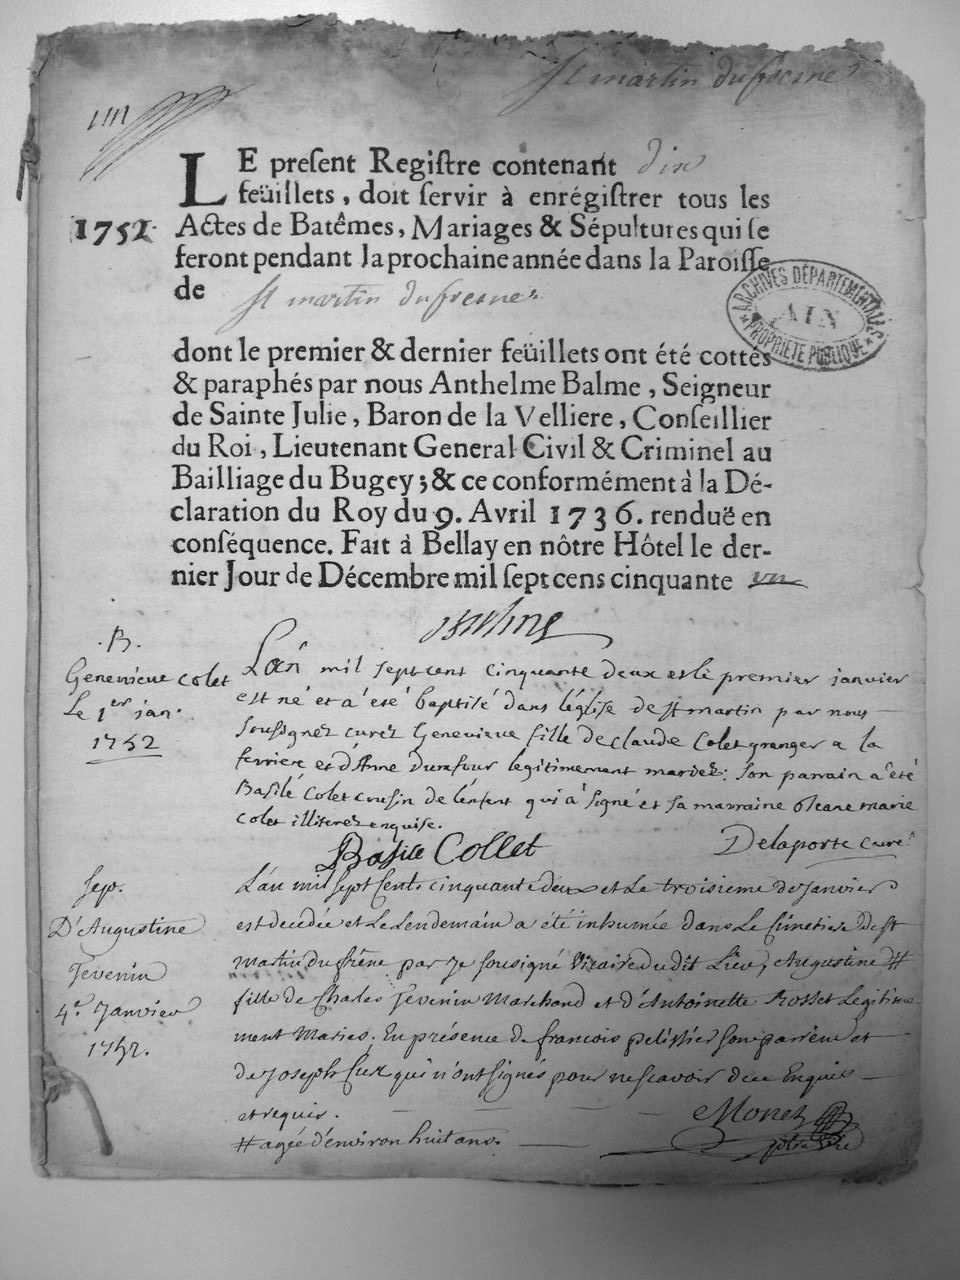 St martin dufresne
LE preſent Regiſtre contenant dix
feüillets, doit ſervir à enrégiſtrer tous les
1752. Actes de Batêmes, Mariages & Sépultures qui ſe
feront pendant la prochaine année dans la Paroiſſe
de St martin dufresne
ARCHIVES DÉPARTEMENTALES
AIN
PROPRIÉTÉ PUBLIQUE
dont le premier & dernier feüillets ont été cottés
& paraphés par nous Anthelme Balme, Seigneur
de Sainte Julie, Baron de la Velliere, Conſeillier
du Roi, Lieutenant General Civil & Criminel au
Bailliage du Bugey; & ce conformément à la Dé-
claration du Roy du 9. Avril 1736. renduë en
conſéquence. Fait à Bellay en nôtre Hôtel le der-
nier Jour de Décembre mil ſept cens cinquante un
.B.
Genevieve Colet
Le 1er jan.
1752
L'an mil sept cent cinquante deux et le premier janvier
est né et a été baptisé dans l'église de st martin par nous
soussignez curez Genevieve fille de claude Colet granger a la
ferriere et d'Anne Durafour legitimement mariez: son parrain a été
Basile Colet cousin de l'enfent qui a signé et sa marraine marie
colet illiterez enquise.
Basile Collet
Delaporte curé
Sep.
D'Augustine
Tevenin
4e. Janvier
1752.
L'an mil sept Cent cinquante deux et Le troisieme de Janvier
est decedée et Le Lendemain a été inhumée dans Le Cimetiere de st
martin du frêne par Je sousigné Vicaire dudit Lieu, Augustine #
fille de Charles Tevenin Marchand et d'Antoinette Rosset Legitime
ment Mariés; En présence de francois pelissier son parrein et
de Joseph qui n'ont signés pour ne scavoir de ce Enquis
et requis.
Monet
# agée d'environ huit ans.